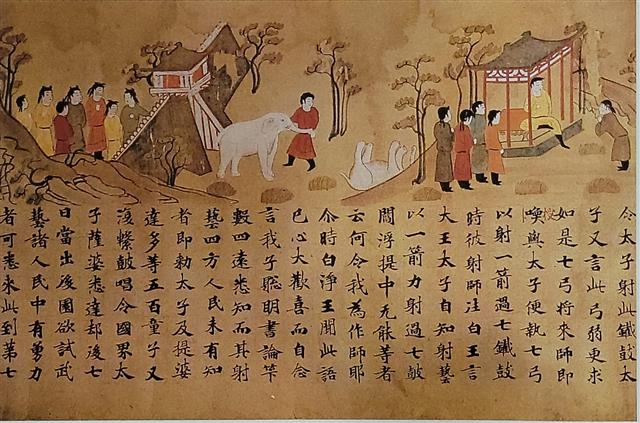 令太子射此鐵鼓太
子又言此弓弱更求
如是七弓将来師即
與太子便執七弓
以射一箭過七鐵鼓
時彼射師往白王言
大王太子自知射藝
以一箭力射過七皷
閻浮提中无能等者
云何令我為作師耶
尒時白淨王聞此語
已心大歡喜而自念
言我子聡明書論笇
數四遠悉知而其射
藝四方人民未有知
者即勅太子及提婆
達多等五百童子又
復擊鼓唱令國界太
子薩婆悉達却後七
日當出後園欲試武
藝諸人民中有勇力
者可悉來此到第七